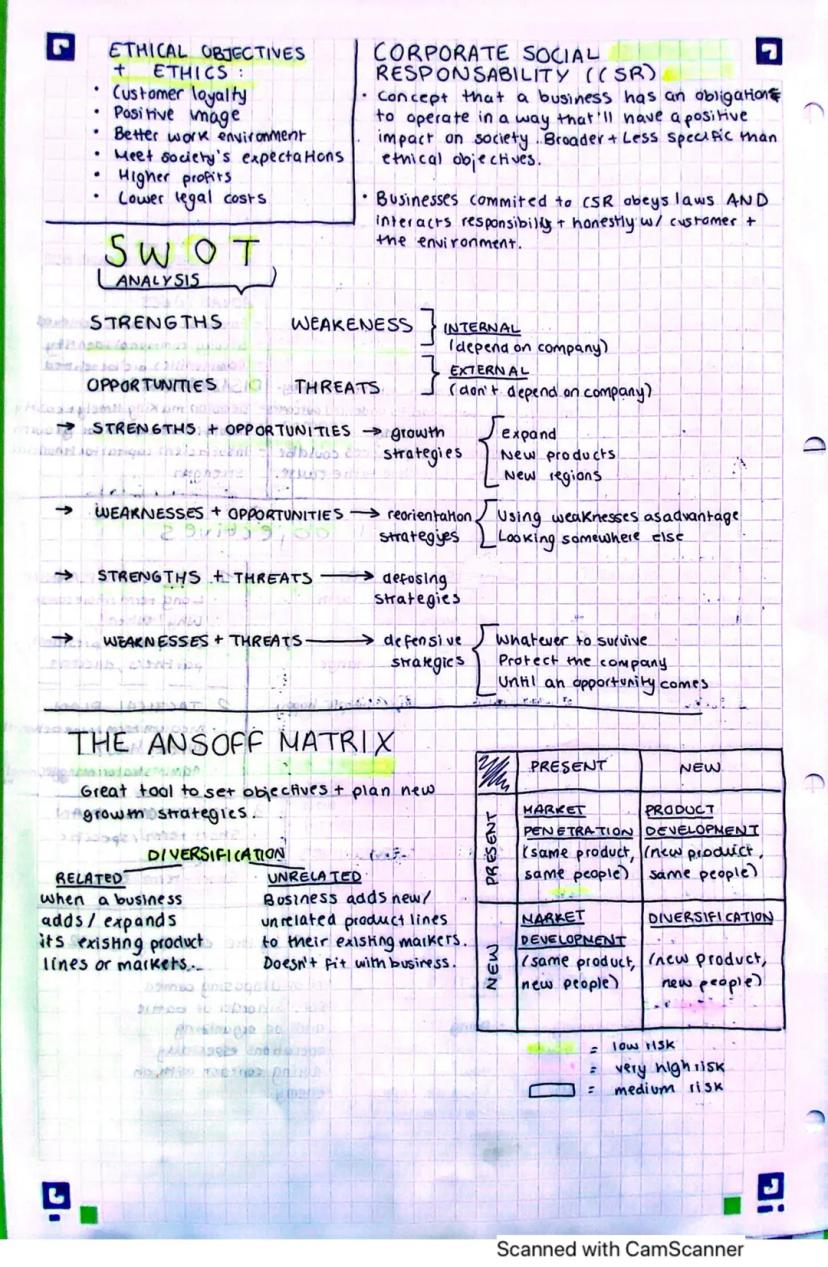 ETHICAL OBJECTIVES
+ ETHICS :
• Customer loyalty
• Positive image
• Better work environment
• Meet society's expectations
• Higher profits
• Lower legal costs
CORPORATE SOCIAL
RESPONSABILITY (CSR)
• Concept that a business has an obligation
to operate in a way that'll have a positive
impact on society. Broader + Less specific than
ethical objectives.
• Businesses commited to CSR obeys laws AND
interacts responsibily + honestly w/ customer +
the environment.
SWOT
ANALYSIS
STRENGTHS WEAKENESS } INTERNAL
(depend on company)
OPPORTUNITIES THREATS } EXTERNAL
(don't depend on company)
→ STRENGTHS + OPPORTUNITIES → growth
strategies
expand
New products
New regions
→ WEAKNESSES + OPPORTUNITIES → reorientation
strategies
Using weaknesses as advantage
Looking somewhere else
→ STRENGTHS + THREATS → defosing
strategies
→ WEAKNESSES + THREATS → defensive
strategies
Whatever to survive
Protect the company
Until an opportunity comes
THE ANSOFF MATRIX
Great tool to set objectives + plan new
growth strategies.
DIVERSIFICATION
RELATED
when a business
adds / expands
its existing product
lines or markets.
UNRELATED
Business adds new/
unrelated product lines
to their existing markers.
Doesn't fit with business.
PRESENT NEW
PRESENT
MARKET
PENETRATION
(same product,
same people)
PRODUCT
DEVELOPMENT
(new product,
same people)
NEW
MARKET
DEVELOPMENT
(same product,
new people)
DIVERSIFICATION
(new product,
new people)
= low risk
= very high risk
= medium risk
Scanned with CamScanner